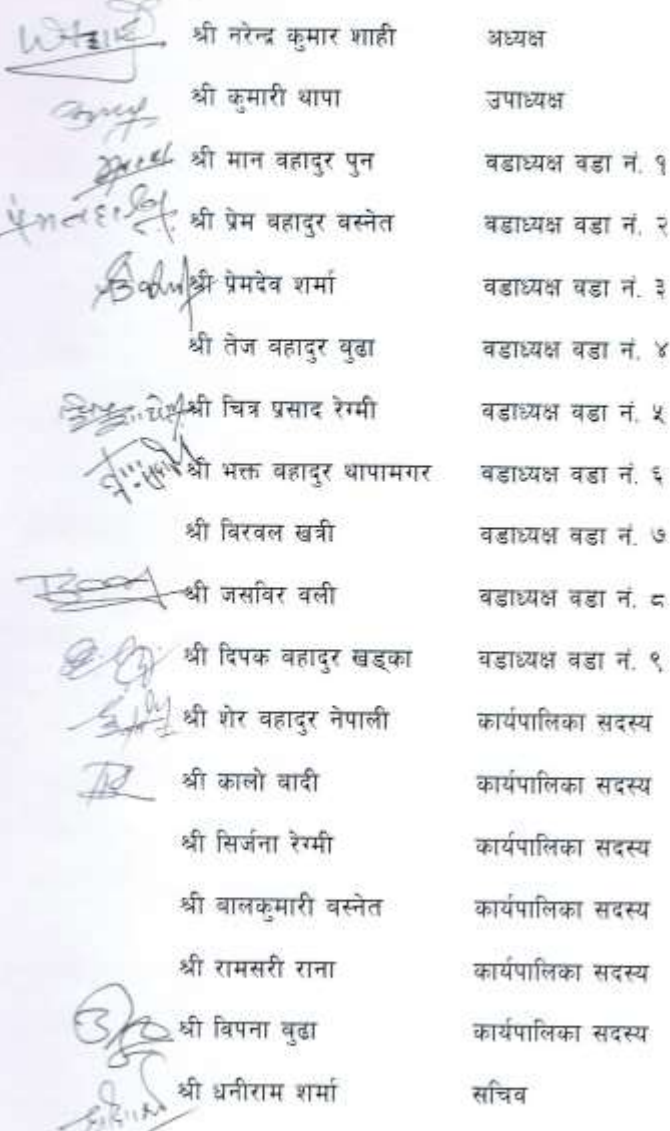 श्री नरेन्द्र कुमार शाही अध्यक्ष
श्री कुमारी थापा उपाध्यक्ष
श्री मान वहादुर पुन वडाध्यक्ष वडा नं. १
श्री प्रेम बहादुर वस्नेत वडाध्यक्ष वडा नं. २
श्री प्रेमदेव शर्मा वडाध्यक्ष वडा नं. ३
श्री तेज वहादुर वुढा वडाध्यक्ष वडा नं. ४
श्री चित्र प्रसाद रेग्मी वडाध्यक्ष वडा नं. ५
श्री भक्त वहादुर थापामगर वडाध्यक्ष वडा नं. ६
श्री विरवल खत्री वडाध्यक्ष वडा नं. ७
श्री जसविर वली वडाध्यक्ष वडा नं. ८
श्री दिपक वहादुर खड्का वडाध्यक्ष वडा नं. ९
श्री शेर वहादुर नेपाली कार्यपालिका सदस्य
श्री कालो वादी कार्यपालिका सदस्य
श्री सिर्जना रेग्मी कार्यपालिका सदस्य
श्री बालकुमारी वस्नेत कार्यपालिका सदस्य
श्री रामसरी राना कार्यपालिका सदस्य
श्री विपना वुढा कार्यपालिका सदस्य
श्री धनीराम शर्मा सचिव